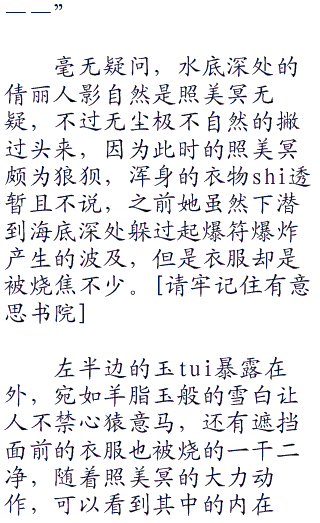 ——”
毫无疑问，水底深处的
倩丽人影自然是照美冥无
疑，不过无尘极不自然的撇
过头来，因为此时的照美冥
颇为狼狈，浑身的衣物shi透
暂且不说，之前她虽然下潜
到海底深处躲过起爆符爆炸
产生的波及，但是衣服却是
被烧焦不少。[请牢记住有意
思书院]
左半边的玉tui暴露在
外，宛如羊脂玉般的雪白让
人不禁心猿意马，还有遮挡
面前的衣服也被烧的一干二
净，随着照美冥的大力动
作，可以看到其中的内在